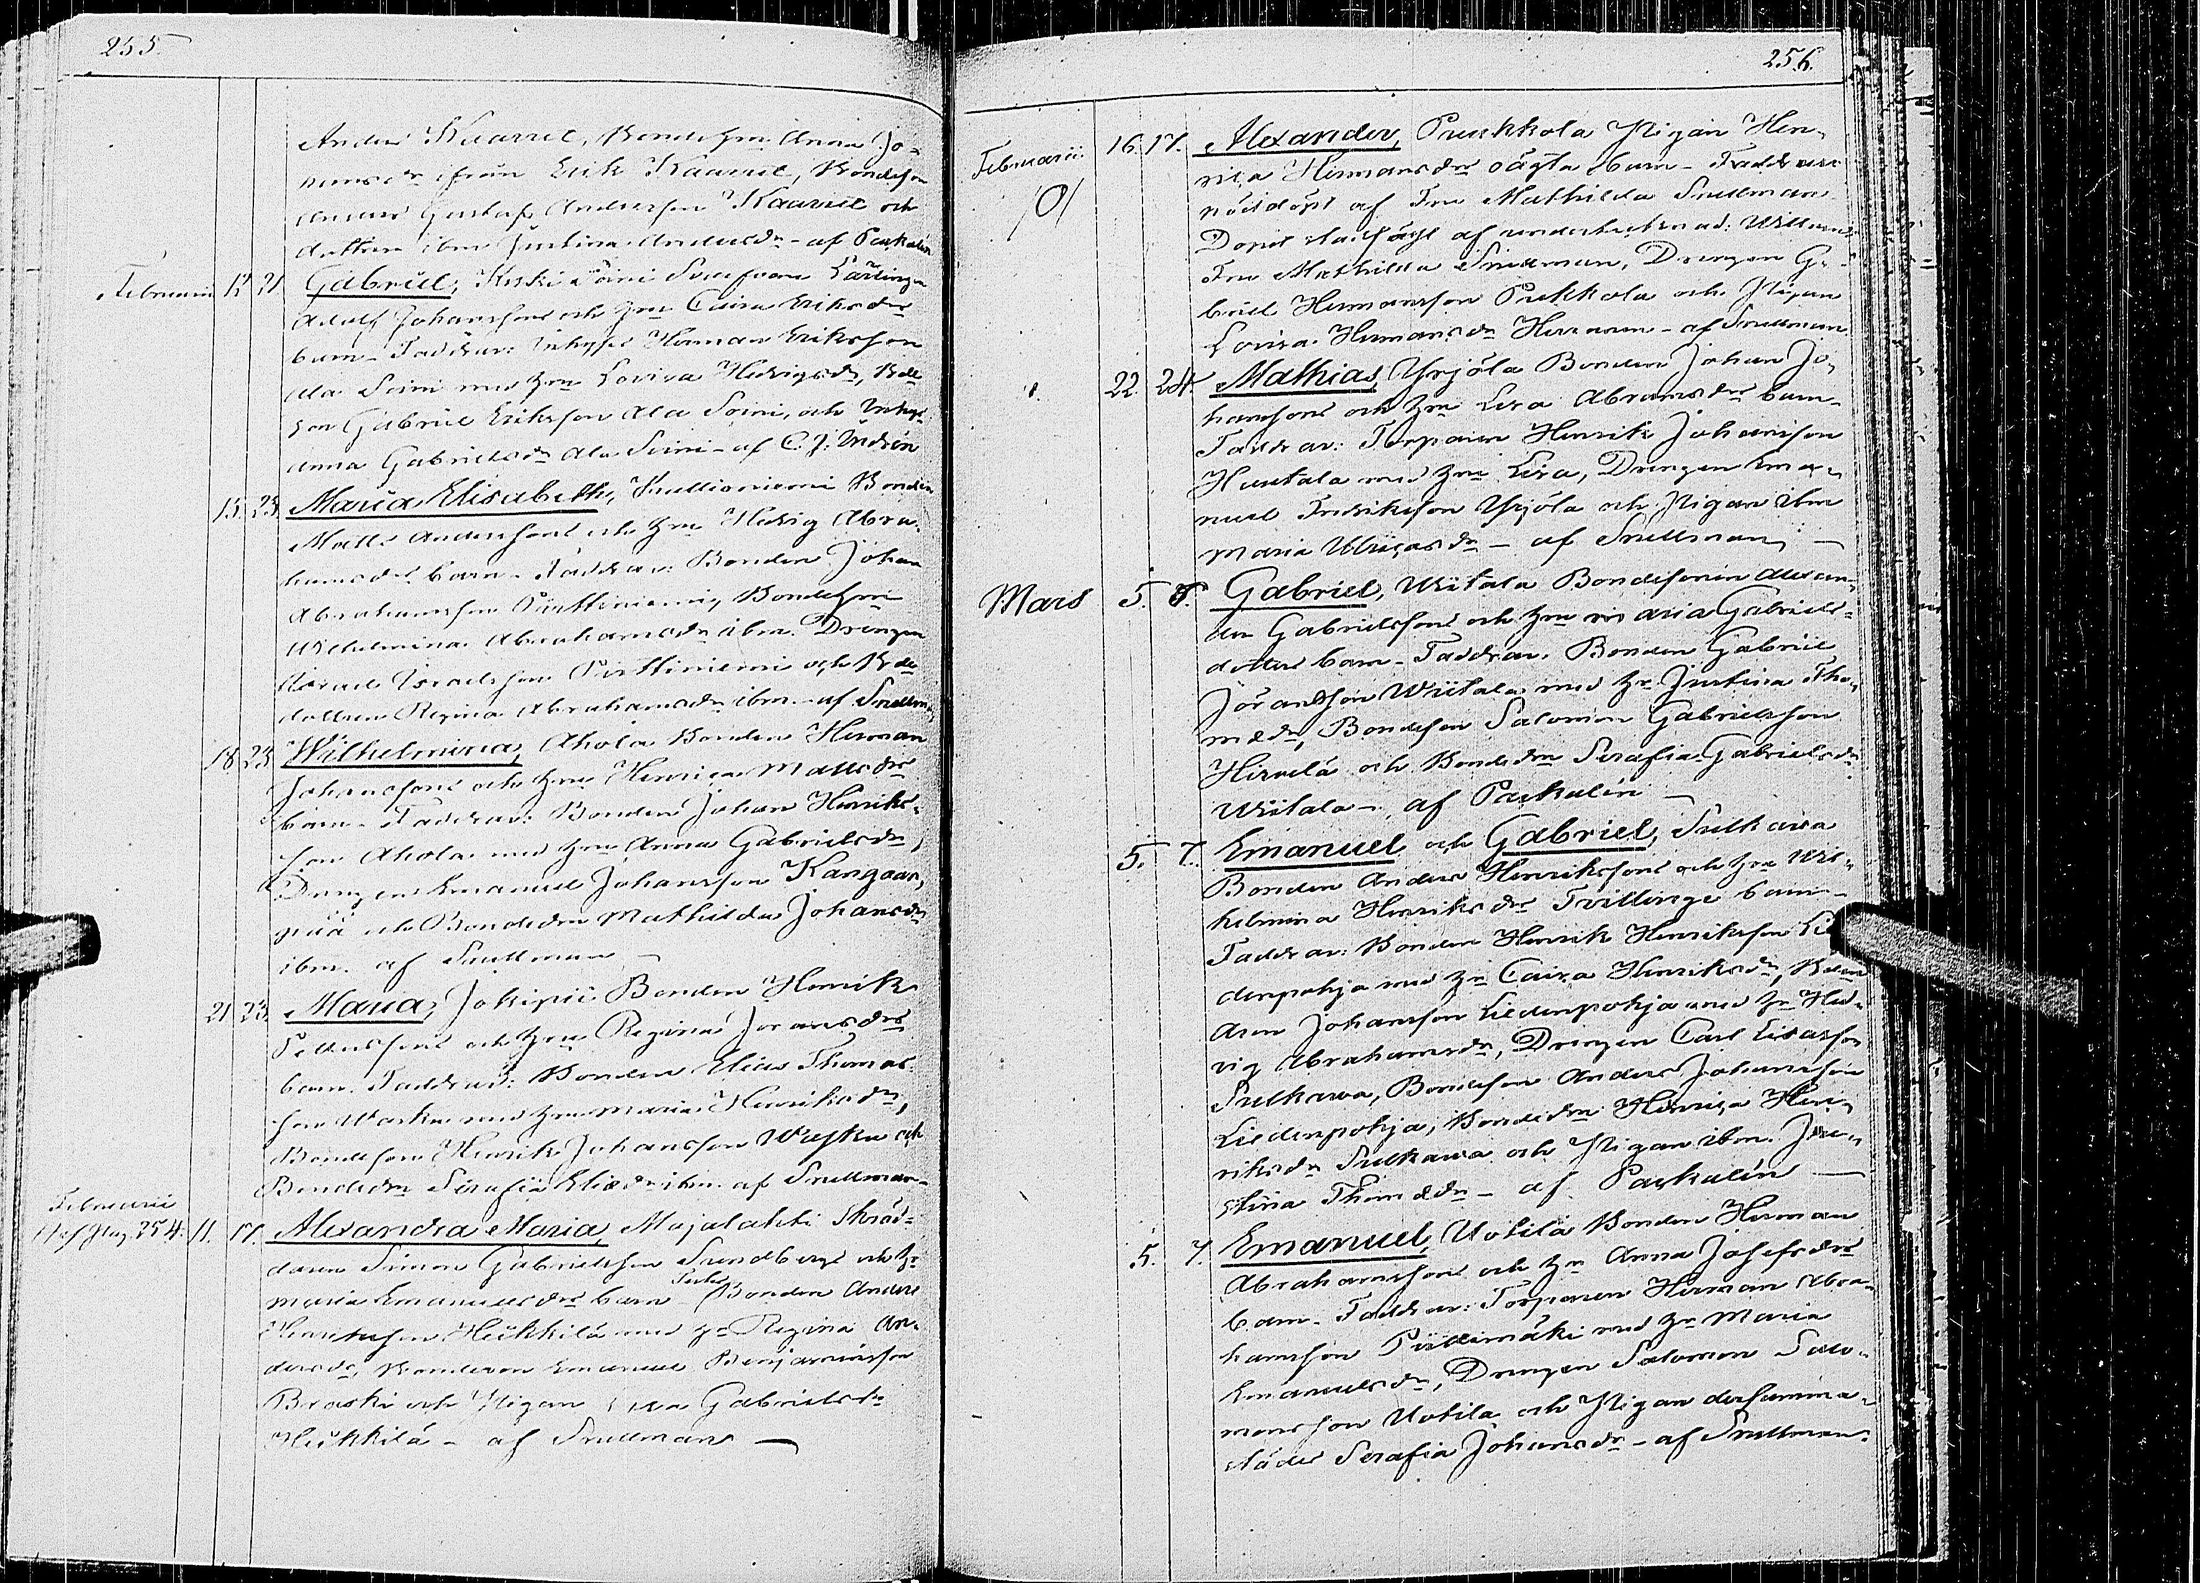 255.
Anders Kaarre, Bondehru Anna Jo-
hansdr ifrån Erik Kaarre, Bondeson
Anders Gustaf Andersson Kaarre och
dottren ibm Justina Andersdr - af Paukulin
Februarii 12 21 Gabriel, Kuski Soini
Adolf Johanssons och hru Caisa Eriksdrs
barn - Faddrar: Inhyses Herman Eriksson
Ala Soini med hru Lovisa Hedvigsdr, Bde
son Gabriel Eriksson Ala Soini, och Inhys.
Anna Gabrielsdr Ala Soini - af C. J. Indrén
15. 23. Maria Elisabeth, Bonden
Matts Anderssons och hru Hedvig Abra-
hamsdrs barn - Faddrar: Bonden Johan
Abrahamsson Pirttiniemi, Bondehru
Wilhelmina Abrahamsdr ibm. Drengen
Israel Israelsson Pirttiniemi och Bde
dottren Regina Abrahamsdr ibm. - af Snellman
18. 23. Wilhelmina, Ahola Bonden Herman
Johanssons och hru Henrica Mattsdrs
barn - Faddrar: Bonden Johan Henriks-
son Ahola med hru Anna Gabrielsdr,
Drengen Emanuel Johansson Kangas-
pää och Bondedrn Mathilda Johansdr
ibm. af Snellman -
21. 23. Maria, Jokipii Bonden Henrik
Petterssons och hru Regina Joransdrs
barn. Faddrar: Bonden Elias Thomas-
son Wasku med hru Maria Henriksdr,
Bondeson Henrik Johansson Wasku och
Bondedrn Serafia Eliædr ibm. af Snellman -
Februarii
pag. 254. 11. 17. Alexandra Maria, Majalahti Skräd-
daren Simon Gabrielsson Sundbergs och hr
Maria Emanuelsdrs barn - Test: Bonden Anders
Henriksson Heikkilä med hr Regina An-
dersdr, Bondeson Emanuel Benjaminsson
Braski och Pigan Lisa Gabrielsdr
Heikkilä - af Snellman -
256.
Februarii 16. 17. Alexander, Puukkola Pigan Hen-
rica Hermansdrs oägta barn - Faddrar
nöddöpt af Fru Mathilda Snellman
Dopet stadfägt af undertecknad: Wittnen:
Fru Mathilda Snellman, Drengen Ga-
briel Hermansson Puukkola och Pigan
Lovisa Hermansdr - af Snellman
". 22. 24. Mathias, Yrjölä Bonden Johan Jo-
hanssons och hru Lisa Abramsdrs barn -
Faddrar: Torparen Henrik Johansson
Huutala med hru Lisa, Drengen Ema-
nuel Fredriksson Yrjölä och Pigan ibm
Maria Ulricasdr - af Snellman -
Mars 5. 8. Gabriel, Wiitala Bondesonen Alexan-
der Gabrielssons och hru Maria Gabriels-
dotters barn - Faddrar. Bonden Gabriel
Joransson Wiitala med hr Justina Tho-
mædr, Bondeson Salomon Gabrielsson
Hirvelä och Bondedrn Serafia Gabrielsdr
Wiitala - af Paukulin -
5. 7. Emanuel och Gabriel, Sulkava
Bonden Anders Henrikssons och hru Wil-
helmina Henriksdrs Tvillinge barn -
Faddrar: Bonden Henrik Henriksson Lie-
denpohja med hr Caisa Henriksdr, Bden
Johansson Liedenpohja med hr Hed-
vig Abrahamsdr, Drengen Carl Eliasson
Sulkava, Bondeson Anders Johansson
Liedenpohja, Bondedrn Henrica Hen-
riksdr Sulkava och Pigan ibm. Ju-
stina Thomædr - af Paukulin -
5. 7. Emanuel, Uotila Bonden Herman
Abrahamssons och hr Anna Josefsdrs
barn - Faddrar: Torparen Herman Abra-
hamsson med hr Maria
Emanuelsdr, Drengen Salomon Salo-
monsson Uotila och Pigan dersamma-
städes Serafia Johansdr - af Snellman